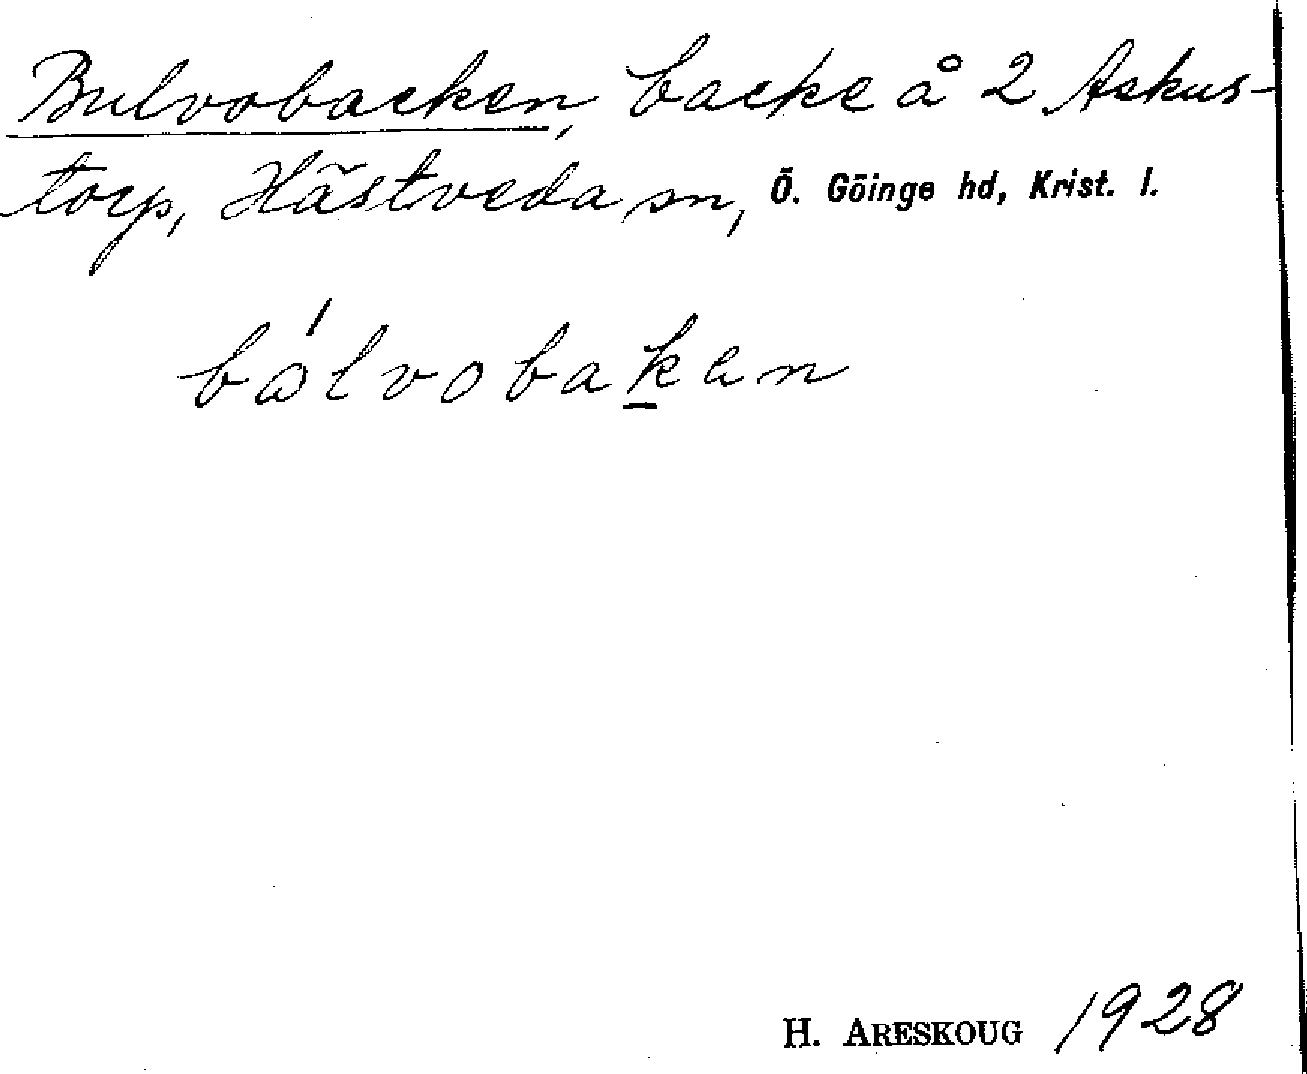 Bulvobacken, backe å 2 Askus-
torp, Hästveda sn, Ö. Göinge hd, Krist. l.
bólvobaken
H. ARESKOUG 1928